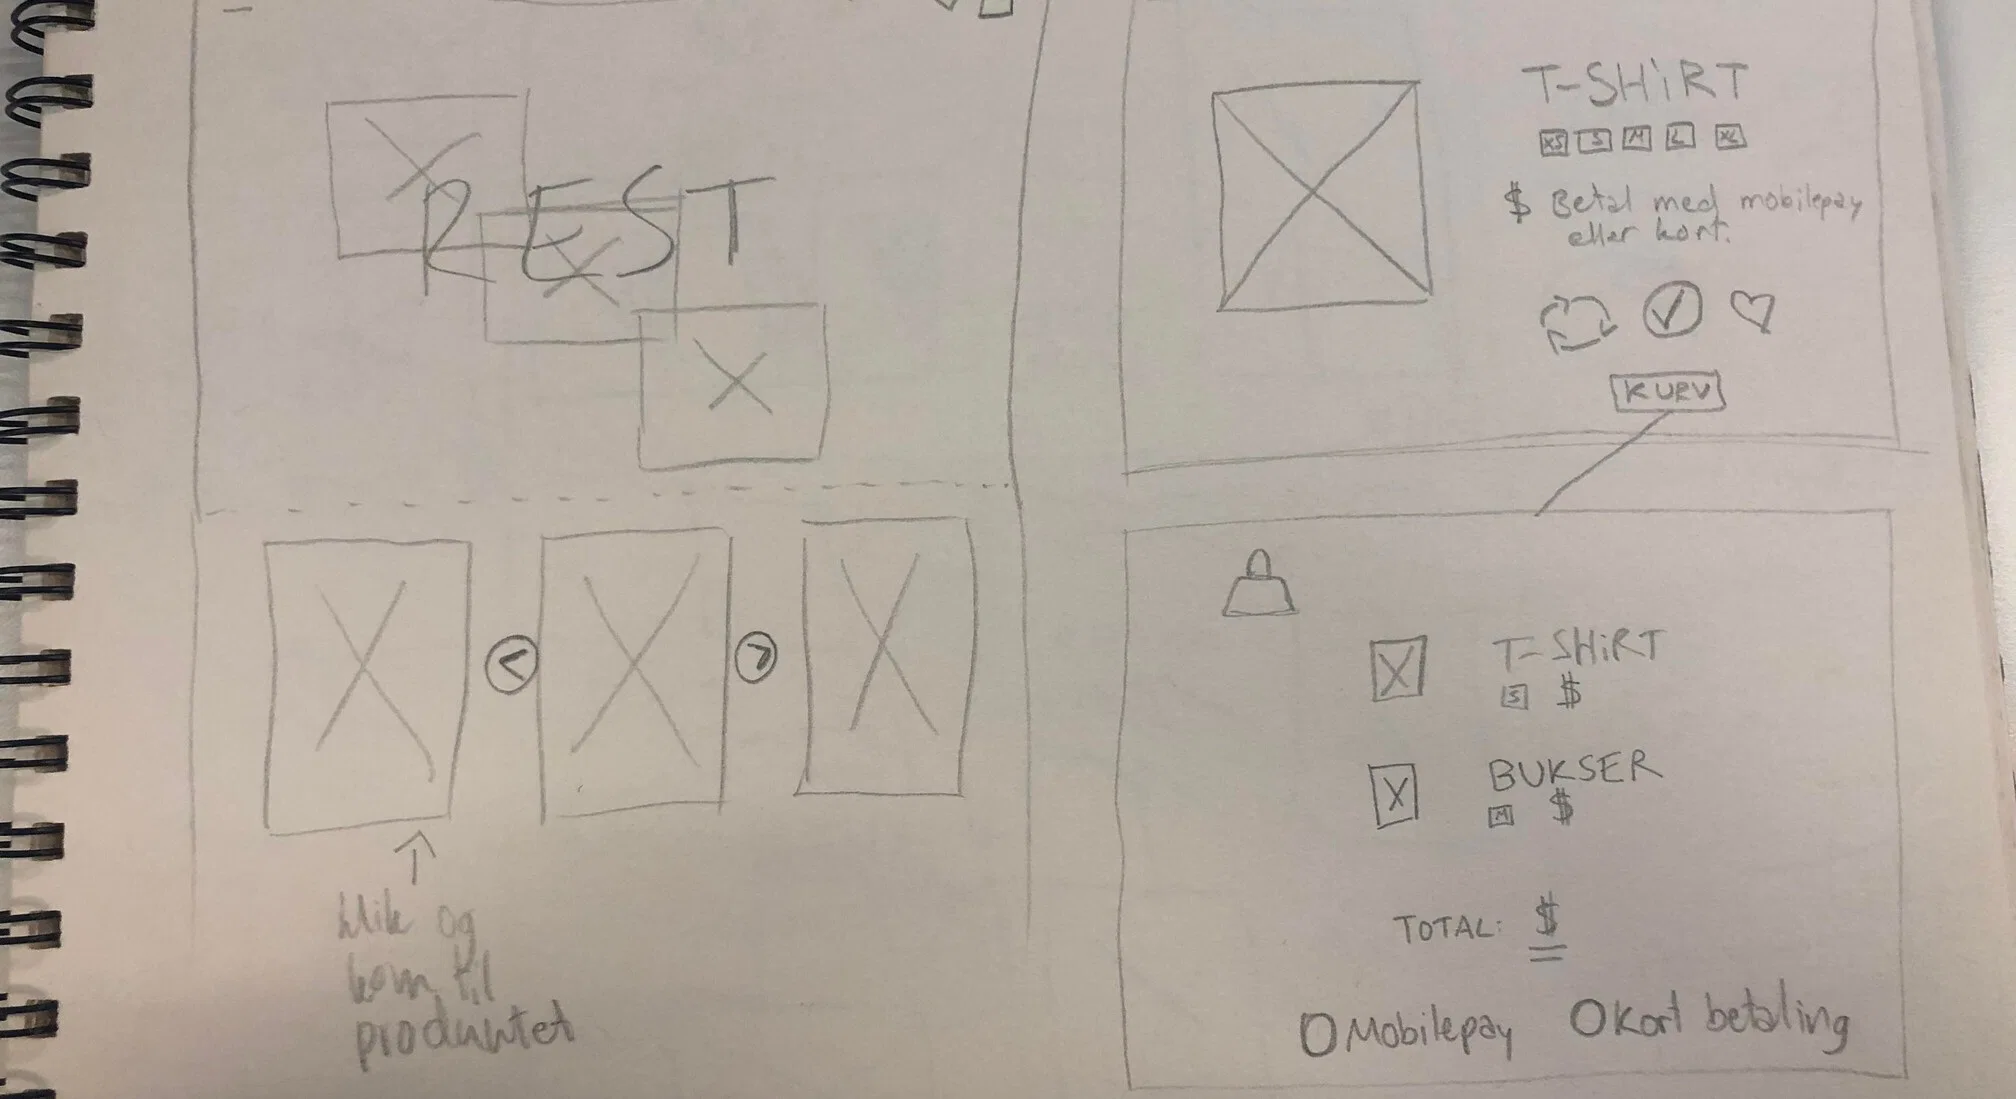 REST
Klik og
kom til
produktet
T-SHiRT
XS S M L XL
$ Betal med mobilepay
eller kort.
KURV
T-SHiRT
S $
BUKSER
M $
TOTAL: $
Mobilepay Kort betaling